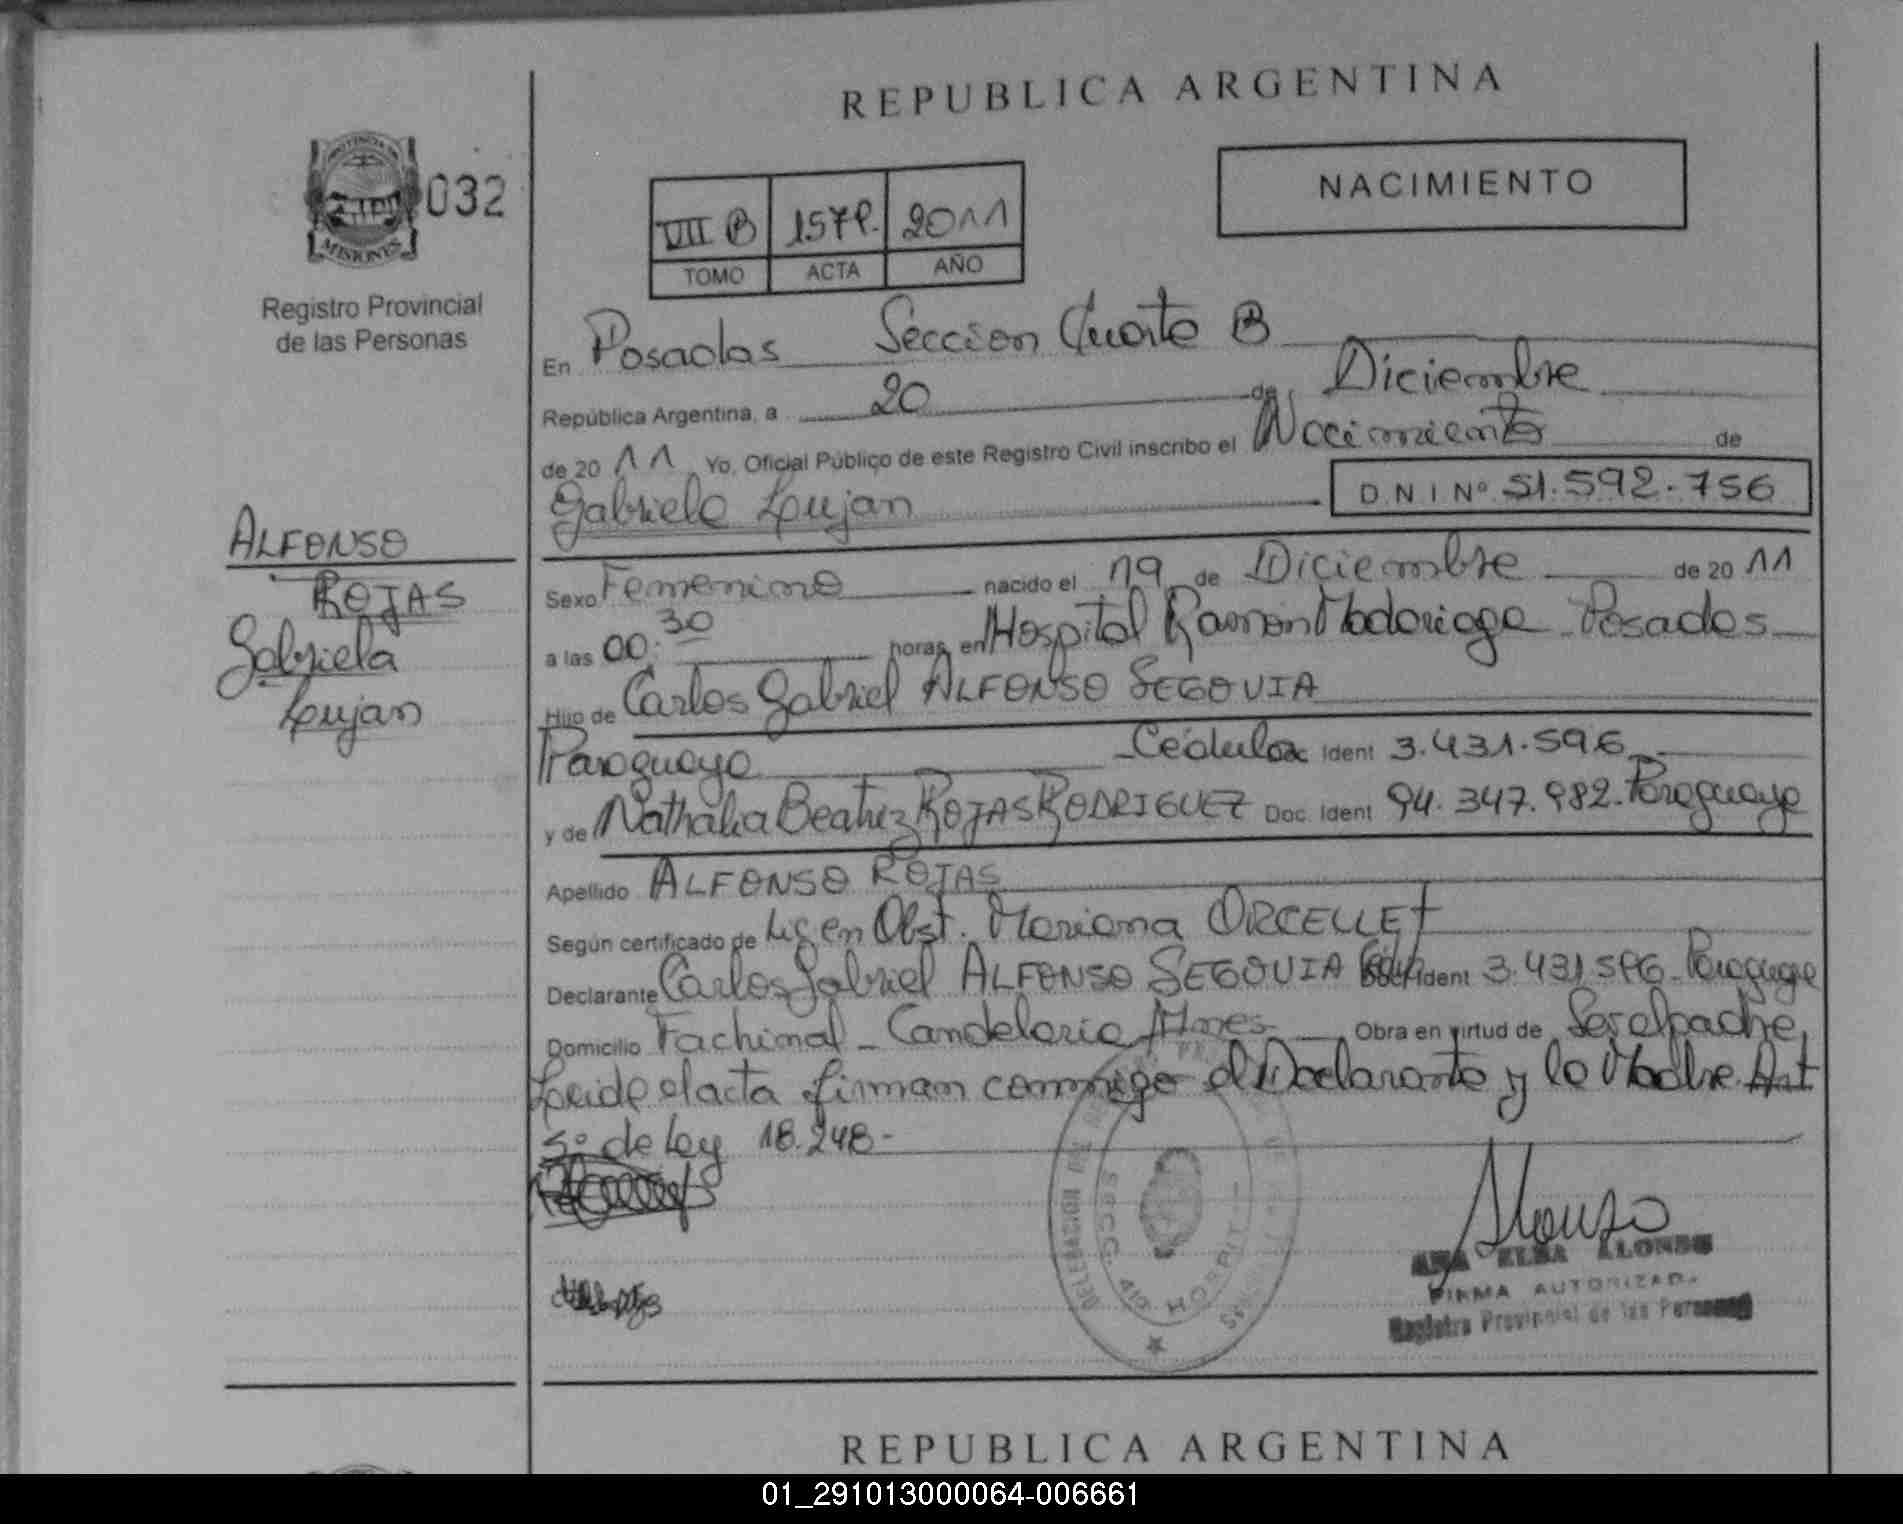 REPUBLICA ARGENTINA
PROVINCIA DE
MISIONES
032
Registro Provincial
de las Personas
NACIMIENTO
VII B 157P. 2011
TOMO ACTA AÑO
En Posadas Seccion Cuarta B
República Argentina, a 20 de Diciembre
de 2011 Yo, Oficial Público de este Registro Civil inscribo el Nacimiento de
Gabriela Lujan D N I Nº 51.592.756
ALFONSO
ROJAS
Gabriela
Lujan
Sexo Femenino nacido el 19 de Diciembre de 2011
a las 00:30 horas, en Hospital Ramon Madariaga Posadas
Hijo de Carlos Gabriel ALFONSO SEGOVIA
Paraguayo Cédula Ident 3.431.596
y de Nathalia Beatriz ROJAS RODRIGUEZ Doc. Ident 94.347.982. Paraguaya
Apellido ALFONSO ROJAS
Según certificado de Lic en Obst. Mariana ORCELLET
Declarante Carlos Gabriel ALFONSO SEGOVIA Ident 3.431.596 Paraguayo
Domicilio Fachinal - Candelaria Mnes Obra en virtud de Ser el padre,
Leida el acta firman conmigo el Declarante y la Madre Art
5º de Ley 18.248-
DELEGACION
SECC. 4ta HOSPIT
Alonso
ANA ELBA ALONSO
FIRMA AUTORIZADA
Registro Provincial de las Personas
REPUBLICA ARGENTINA
01_291013000064-006661